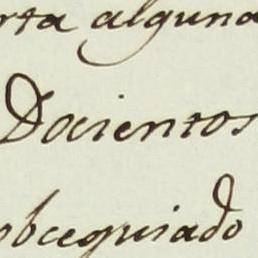 rta alguna
Docientos
obcequiado